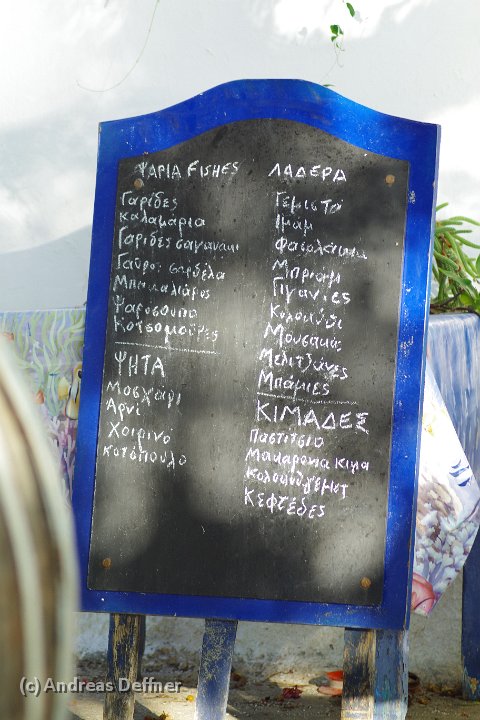 ΨΑΡΙΑ FISHES
Γαρίδες
Καλαμάρια
Γαρίδες σαγανακι
Γαύρος σαρδέλα
Μπακαλιάρος
Ψαροσουπα
Κοτσομούρες
ΨΗΤΑ
Μοσχάρι
Αρνί
Χοιρινό
Κοτόπουλο
ΛΑΔΕΡΑ
Γεμιστά
Ιμάμ
Φασολάκια
Μπριάμ
Γίγαντες
Κολοκύθι
Μουσακάς
Μελιτζάνες
Μπάμιες
ΚΙΜΑΔΕΣ
Παστίτσιο
Μακαρόνια κιμα
Κολοκυθ/γεμιστ
Κεφτέδες
(c) Andreas Deffner